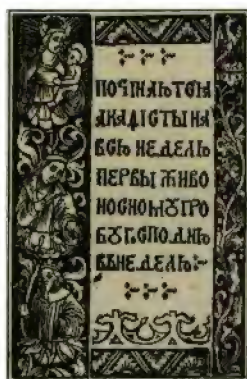 ПОЧИНАЮТСѦ
АКАФІСТЫ НА
ВСЮ НЕДЕЛЮ
ПЕРВЫ ЖИВО
НОСНОМꙊ ГРО
БꙊ Гⷭ҇ПОДНЮ
ВВНЕДЕЛЮ:~